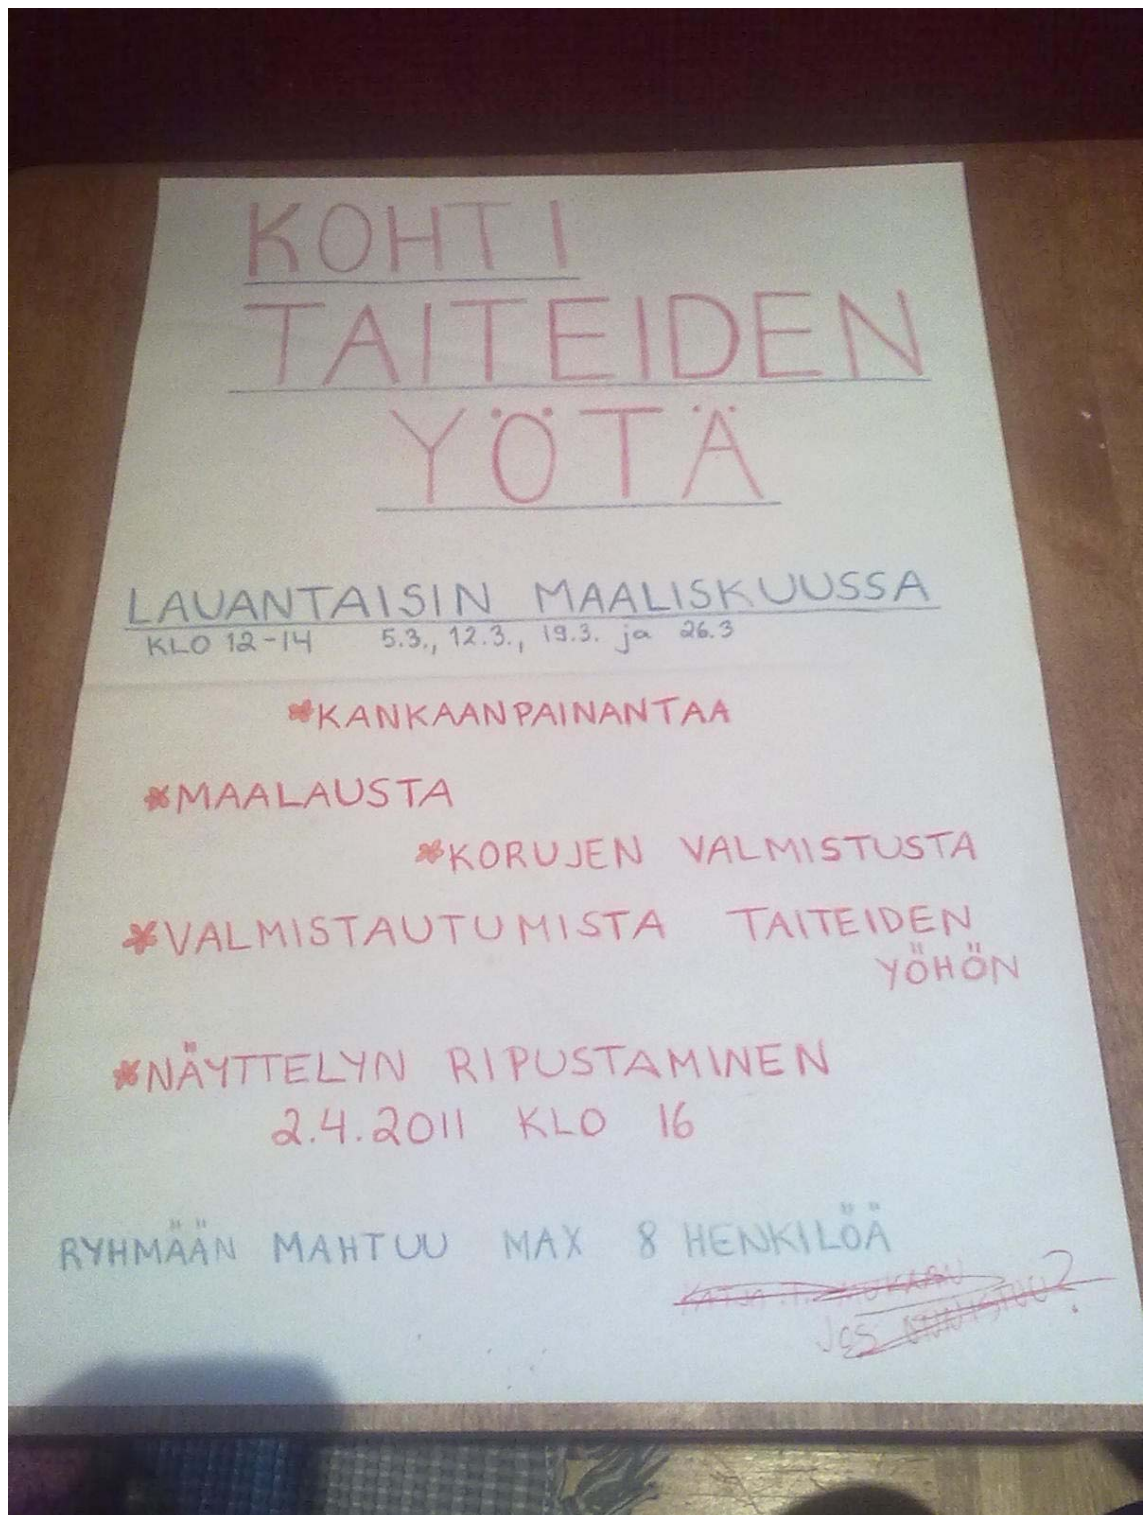 KOHTI
TAITEIDEN
YÖTÄ
LAUANTAISIN MAALISKUUSSA
KLO 12-14 5.3., 12.3., 19.3. ja 26.3
*KANKAANPAINANTAA
*MAALAUSTA
*KORUJEN VALMISTUSTA
*VALMISTAUTUMISTA TAITEIDEN
YÖHÖN
*NÄYTTELYN RIPUSTAMINEN
2.4.2011 KLO 16
RYHMÄÄN MAHTUU MAX 8 HENKILÖÄ